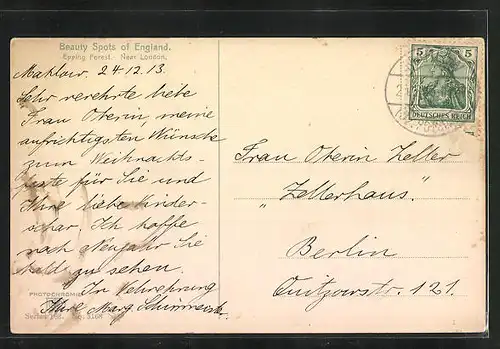 Beauty Spots of England.
Epping Forest. Near London.
24.12.13.
Sehr verehrte liebe
Frau Oberin, meine
aufrichtigsten Wünsche
zum Weihnachts-
feste für Sie und
Ihre liebe Kinder-
schar. Ich hoffe
nach Neujahr Sie
bald zu sehen.
In Verehrung
Ihre Marg.
PHOTOCHROMIE
Frau Oberin Zeller
"Zellerhaus."
Berlin
Quitzowstr. 121.
5 5
DEUTSCHES REICH